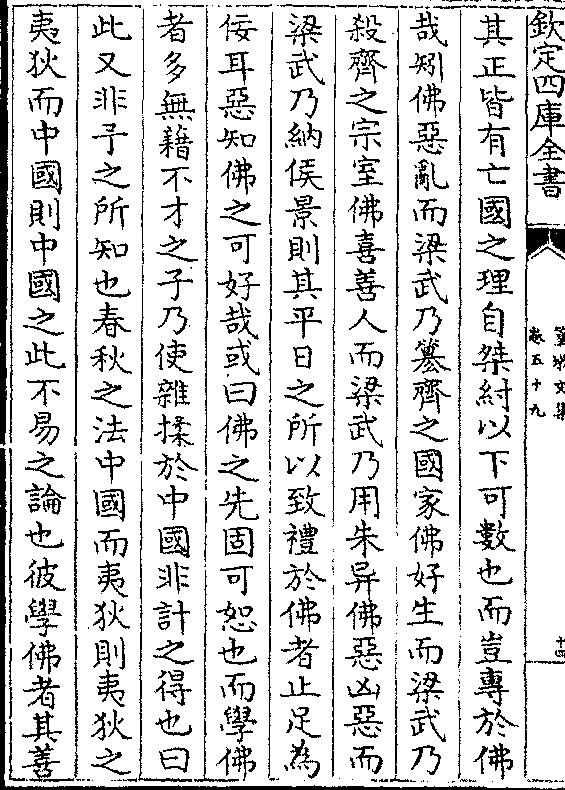 欽定四庫全書
卷五十九
十四
其正皆有亡國之理自桀紂以下可數也而豈專於佛
哉矧佛惡亂而梁武乃簒齊之國家佛好生而梁武乃
殺齊之宗室佛喜善人而梁武乃用朱异佛惡凶惡而
梁武乃納侯景則其平日之所以致禮於佛者止足為
佞耳惡知佛之可好哉或曰佛之先固可恕也而學佛
者多無藉不才之子乃使雜揉於中國非計之得也曰
此又非予之所知也春秋之法中國而夷狄則夷狄之
夷狄而中國則中國之此不易之論也彼學佛者其善